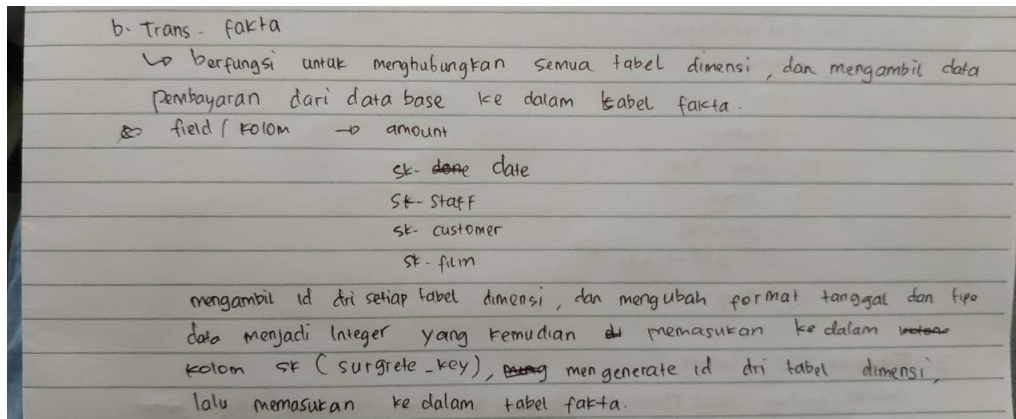 b. Trans - fakta
↳ berfungsi untuk menghubungkan semua tabel dimensi, dan mengambil data
pembayaran dari data base ke dalam tabel fakta.
field / kolom → amount
sk- date
sk- staff
sk- customer
sk- film
mengambil id dri setiap tabel dimensi, dan mengubah format tanggal dan tipe
data menjadi Integer yang kemudian memasukan ke dalam
kolom sk (surgrete_key), mengenerate id dri tabel dimensi,
lalu memasukan ke dalam tabel fakta.